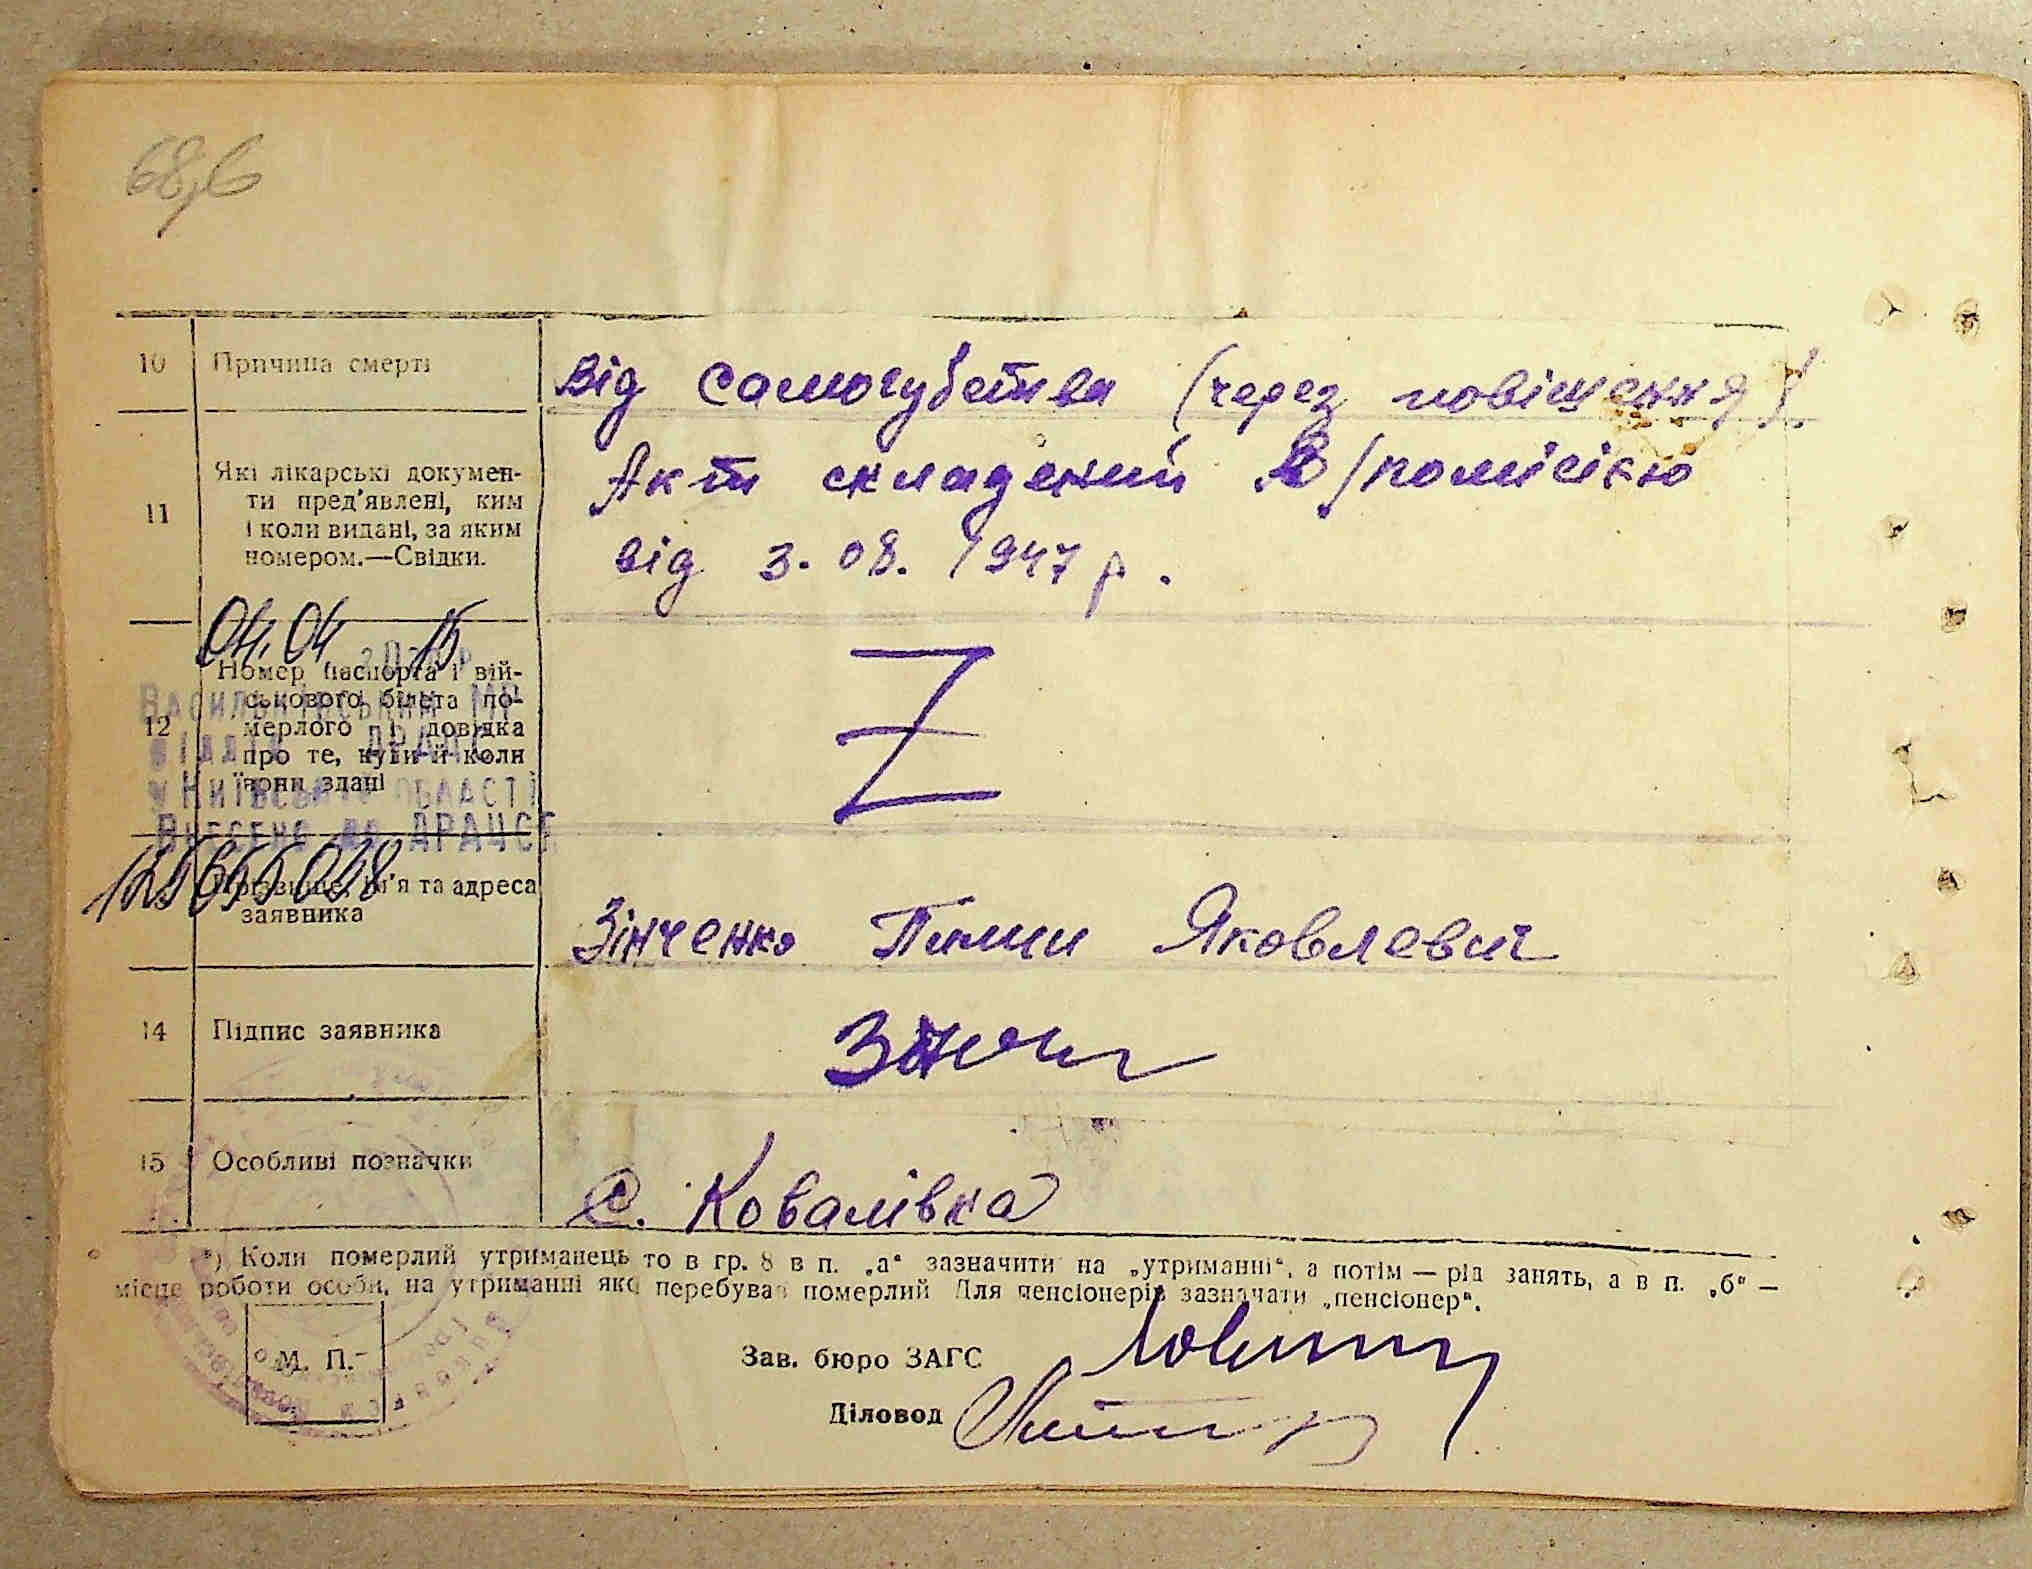 10 Причина смерті
від самогубства (через повішення).
11 Які лікарські докумен-
ти пред'явлені, ким
і коли видані, за яким
номером.—Свідки.
Акт складений в/комісією
від 3.08.1947 р.
04.04 15
12 Номер паспорта і вій-
ськового білета по-
мерлого і довідка
про те, куди й коли
вони здані
Z
Васильківським МР
відділ ДРАЦС
у Київській області
Внесено до ДРАЦСГ
Прізвище, ім'я та адреса
заявника
Зінченко Яковлевич
14 Підпис заявника
15 Особливі позначки
с. Ковалівка
*) Коли померлий утриманець то в гр. 8 в п. „а“ зазначити на „утриманні“, а потім — рід занять, а в п. „б“ —
місце роботи особи, на утриманні якої перебував померлий Для пенсіонерів зазначати „пенсіонер“.
М. П.
Зав. бюро ЗАГС
Діловод